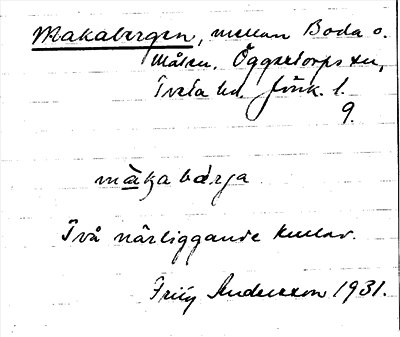 Makabergen, mellan Boda o.
Målen. Öggestorps sn,
Tveta hd. Jönk. l.
9.
màka bárja
Två närliggande kullar.
Fritz Andersson 1931.